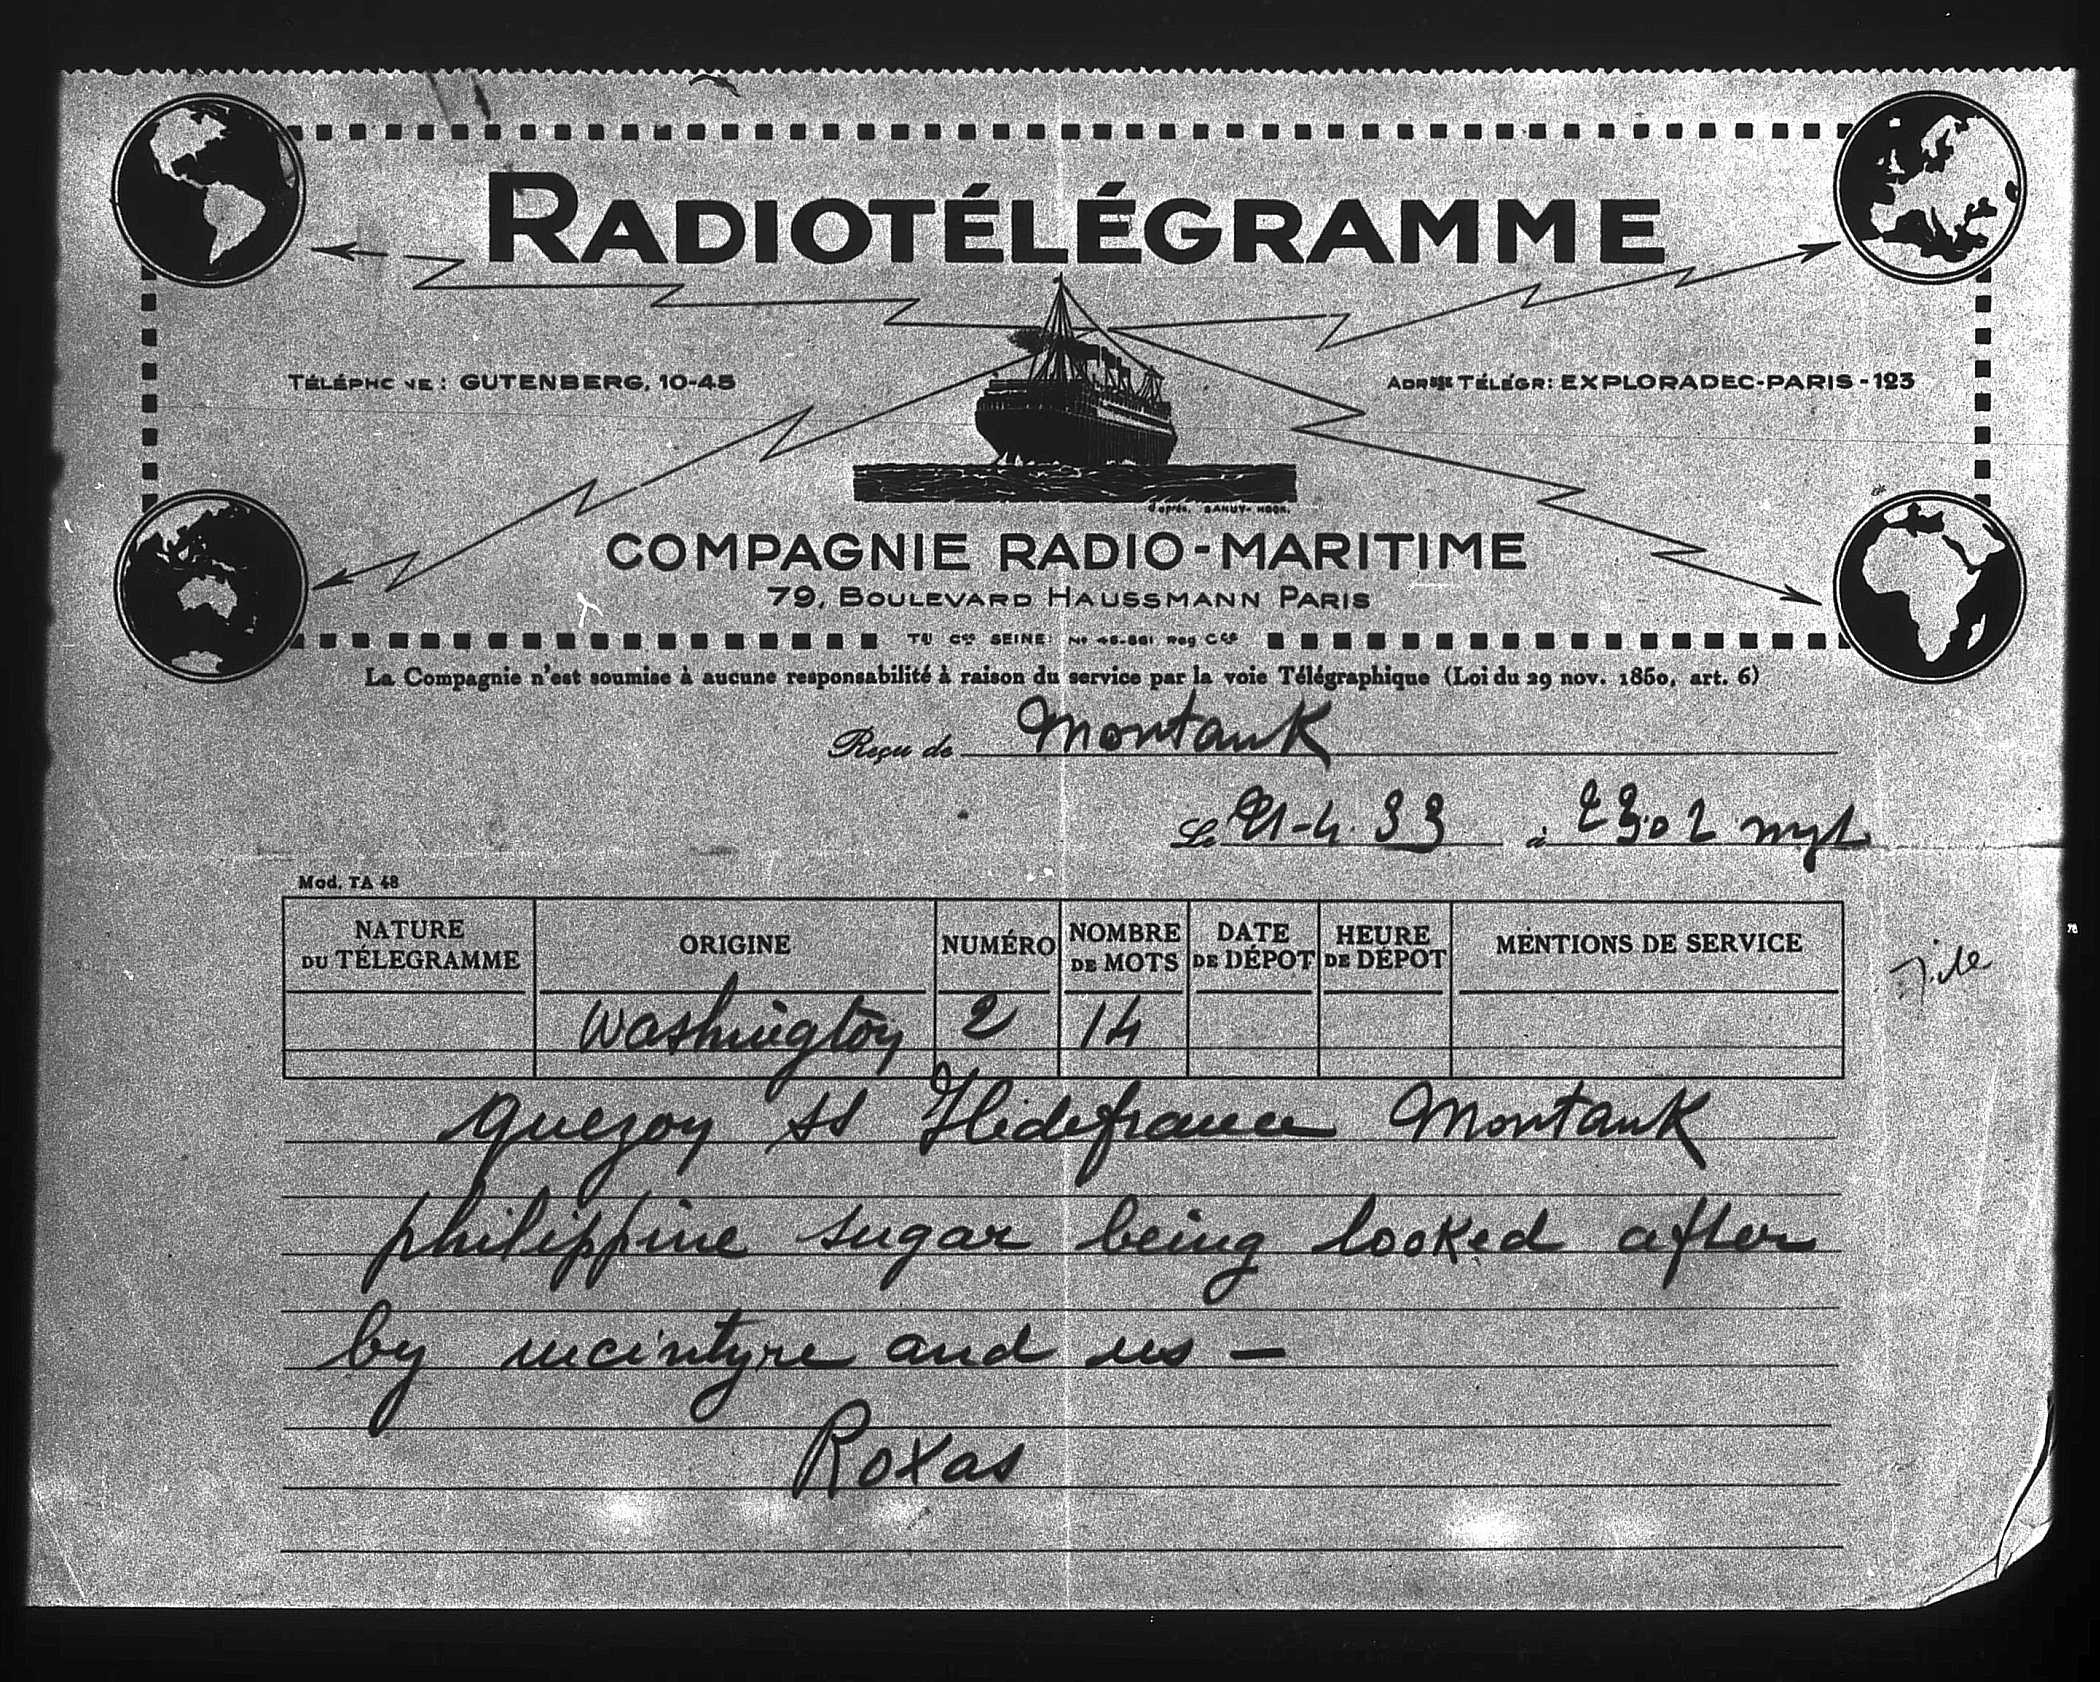 RADIOTÉLÉGRAMME
TÉLÉPHONE: GUTENBERG, 10-45
TÉLÉGR: EXPLORADEC-PARIS-123
COMPAGNIE RADIO-MARITIME
79, BOULEVARD HAUSSMANN PARIS
SEINE:
La Compagnie n'est soumise à aucune responsabilité à raison du service par la voie Télégraphique (Loi du 29 nov. 1850, art. 6)
Reçu de Montauk
Le 21-4.33 à 23.02
Mod. TA 48
NATURE DU TÉLEGRAMME ORIGINE NUMÉRO NOMBRE DE MOTS DATE DE DÉPOT HEURE DE DÉPOT MENTIONS DE SERVICE
File
Washington 2 14
Quezon ss Iledefrance Montauk
philippine sugar being looked after
by mcintyre and us —
Roxas